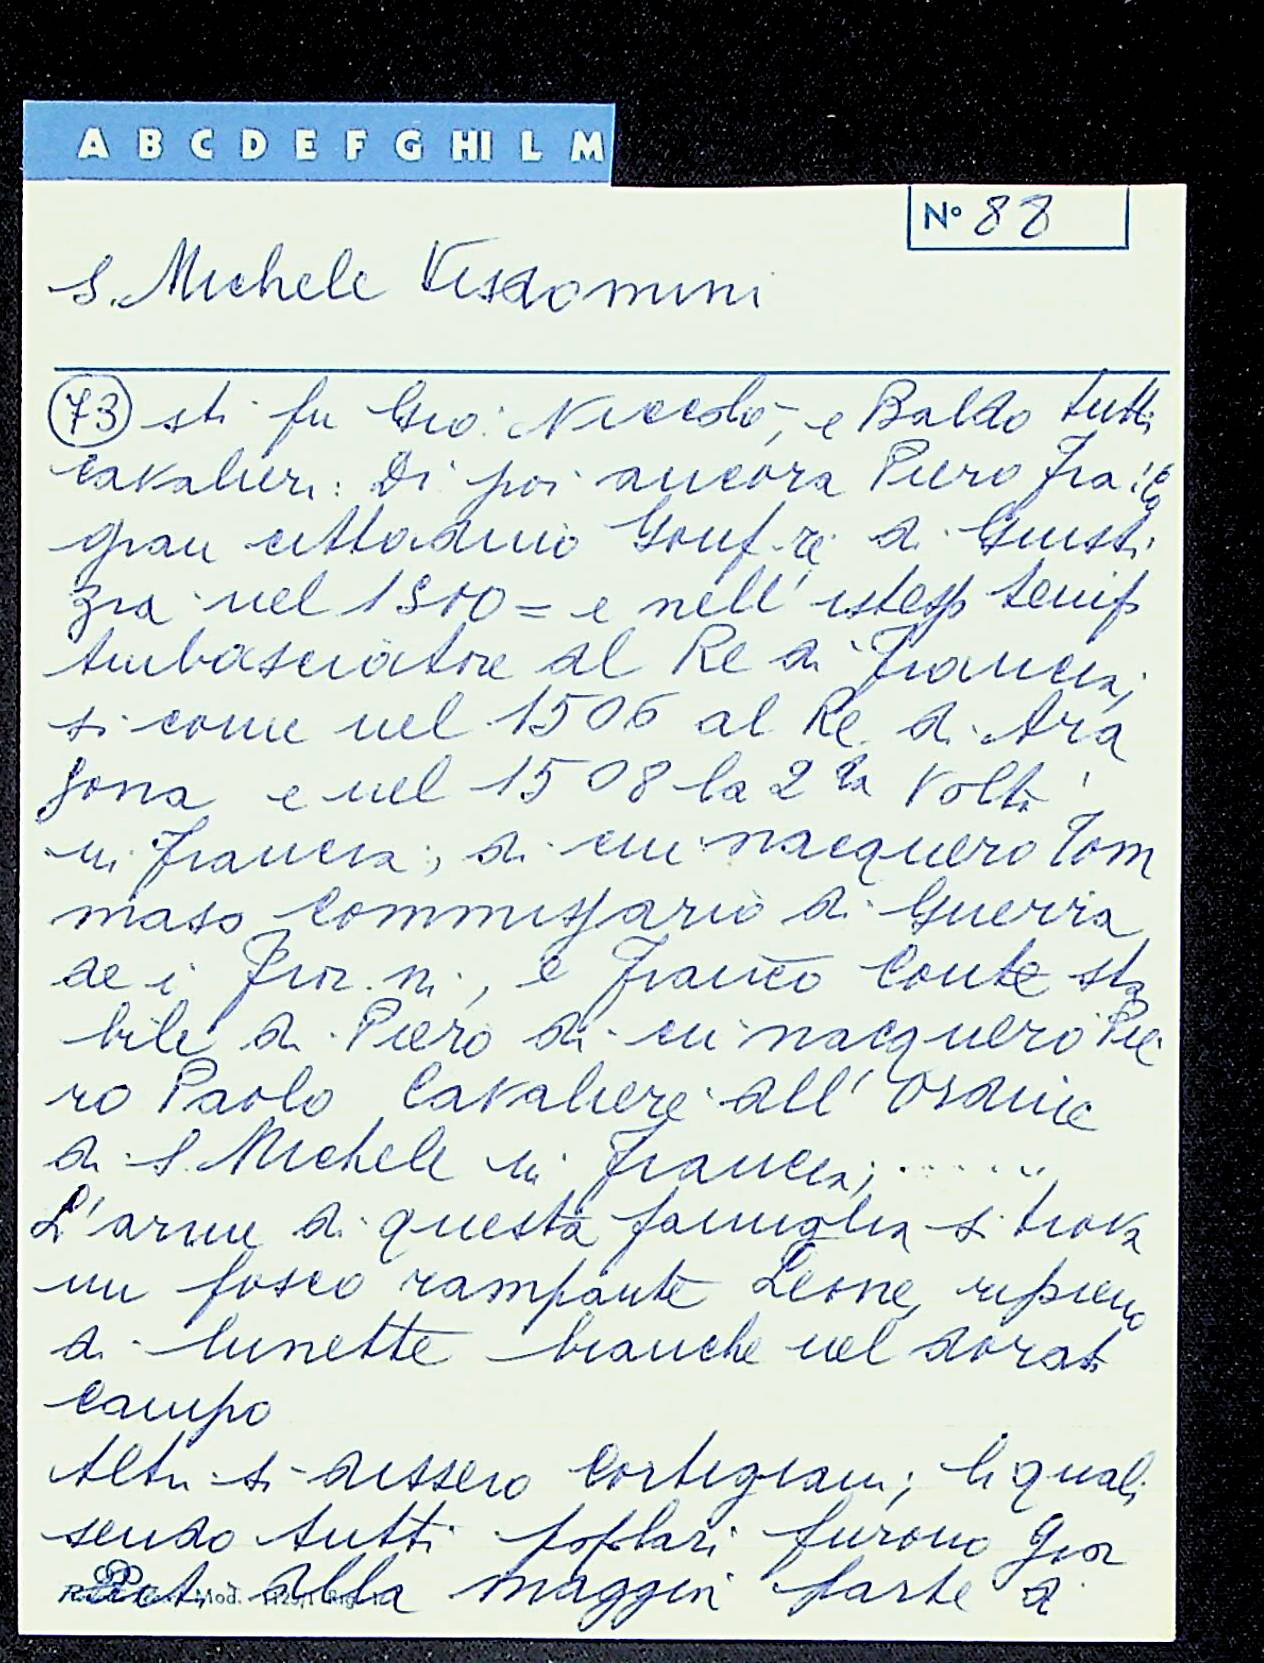 A B C D E F G HI L M
N° 88
S. Michele Visdomini
73 sti fu Gio: Niccolò, e Baldo tutti
Cavalieri: Di poi ancora Piero Fra:co
gran cittadino Gonf.re di Giusti
zia nel 1500 = e nell' istesso tempo
Ambasciatore al Re di Francia;
si come nel 1506 al Re di Ara
gona e nel 1508 la 2da Volta
in Francia; di cui nacquero Tom
maso Commissario di Guerra
de i Fior.ni, e Franco Conte sta
bile di Piero di cui nacquero Pie
ro Paolo Cavaliere all' Ordine
di S. Michele in Francia; . . . . . .
L'arme di questa famiglia si trova
un fosco rampante Leone, ripieno
di lunette bianche nel dorato
campo
Altri si dissero Cortigiani; li quali
sendo tutti popolari furono
alla maggior parte di